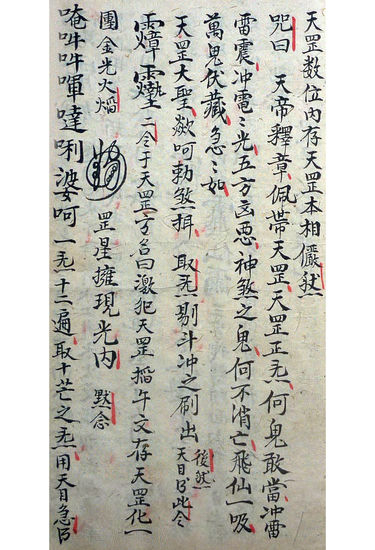 天罡数位内存天罡本相儼然
咒曰 天帝釋章佩帶天罡天罡正炁何鬼敢當冲雷
雷震冲電〻光五方凶惡神煞之鬼何不消亡飛仙一吸
萬鬼伏藏急〻如
天罡大聖歘呵勅煞摄 取炁剔斗冲之刷出 後然天目此令
二令于天罡方名曰激犯天罡搯午文存天罡化一
團金光火焰 罡星擁現光内 默念
唵吽吽㖶噠唎婆呵 一炁十二遍取十芒之炁用天目急